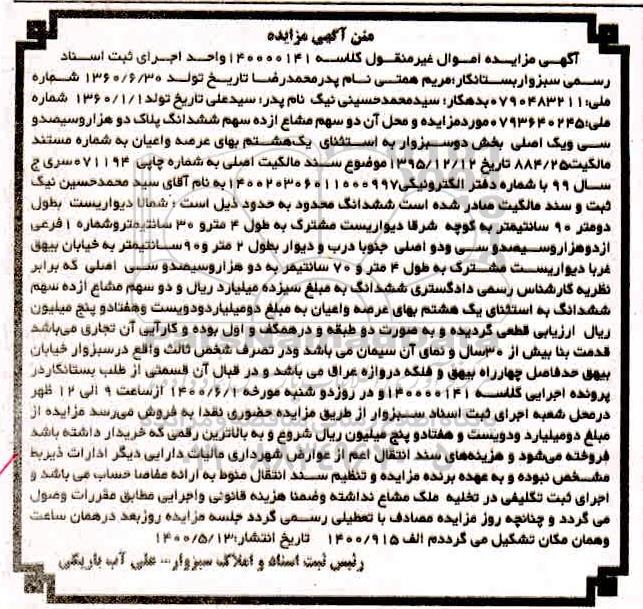 متن آگهی مزایده
آگهی مزایده اموال غیرمنقول کلاسه ۱۴۰۰۰۰۱۴۱واحد اجرای ثبت اسناد
رسمی سبزواربستانکار:مریم همتی نام پدرمحمدرضا تاریخ تولد ۱۳۶۰/۶/۳۰ شماره
ملی:۰۷۹۰۴۸۳۲۱۱بدهکار: سیدمحمدحسینی نیک نام پدر: سیدعلی تاریخ تولد۱۳۶۰/۱/۱ شماره
ملی:۰۷۹۳۶۴۰۲۴۵موردمزایده و محل آن دو سهم مشاع ازده سهم ششدانگ پلاک دو هزاروسیصدو
سی ویک اصلی بخش دوسبزوار به استثنای یک‌هشتم بهای عرصه واعیان به شماره مستند
مالکیت۸۸۴/۲۵ تاریخ ۱۳۹۵/۱۲/۱۲موضوع سند مالکیت اصلی به شماره چاپی ۰۷۱۱۹۴سری ج
سال ۹۹ با شماره دفتر الکترونیکی۱۴۰۰۲۰۳۰۶۰۱۱۰۰۰۹۹۷به نام آقای سید محمدحسین نیک
ثبت و سند مالکیت صادر شده است ششدانگ محدود به حدود ذیل است : شمالا دیواریست بطول
دومتر ۹۰ سانتیمتر به کوچه شرقا دیواریست مشترک به طول ۴ مترو ۳۰ سانتیمتروشماره ۱فرعی
ازدوهزاروسیصدو سی ودو اصلی جنوبا درب و دیوار بطول ۲ متر و۹۰سانتیمتر به خیابان بیهق
غربا دیواریست مشترک به طول ۴ متر و ۷۰ سانتیمر به دو هزاروسیصدو سی اصلی که برابر
نظریه کارشناس رسمی دادگستری ششدانگ به مبلغ سیزده میلیارد ریال و دو سهم مشاع ازده سهم
ششدانگ به استثنای یک هشتم بهای عرصه واعیان به مبلغ دومیلیاردودویست وهفتادو پنج میلیون
ریال ارزیابی قطعی گردیده و به صورت دو طبقه و درهمکف و اول بوده و کارآیی آن تجاری می‌باشد
قدمت بنا بیش از ۳۰سال و نمای آن سیمان می باشد ودر تصرف شخص ثالث واقع درسبزوار خیابان
بیهق حدفاصل چهارراه بیهق و فلکه دروازه عراق می باشد و در قبال آن قسمتی از طلب بستانکاردر
پرونده اجرایی کلاسه ۱۴۰۰۰۰۱۴۱و در روزدو شنبه مورخه ۱۴۰۰/۶/۱ ازساعت ۹ الی ۱۲ ظهر
درمحل شعبه اجرای ثبت اسناد سبزوار از طریق مزایده حضوری نقدا به فروش می‌رسد مزایده از
مبلغ دومیلیارد ودویست و هفتادو پنج میلیون ریال شروع و به بالاترین رقمی که خریدار داشته باشد
فروخته می‌شود و هزینه‌های سند انتقال اعم از عوارض شهرداری مالیات دارایی دیگر ادارات ذیربط
مشخص نبوده و به عهده برنده مزایده و تنظیم سند انتقال منوط به ارائه مفاصا حساب می باشد و
اجرای ثبت تکلیفی در تخلیه ملک مشاع نداشته وضمنا هزینه قانونی واجرایی مطابق مقررات وصول
می گردد و چنانچه روز مزایده مصادف با تعطیلی رسمی گردد جلسه مزایده روزبعد درهمان ساعت
وهمان مکان تشکیل می گرددم الف ۱۴۰۰/۹۱۵ تاریخ انتشار:۱۴۰۰/۵/۱۳
رئیس ثبت اسناد و املاک سبزوار– علی آب باریکی